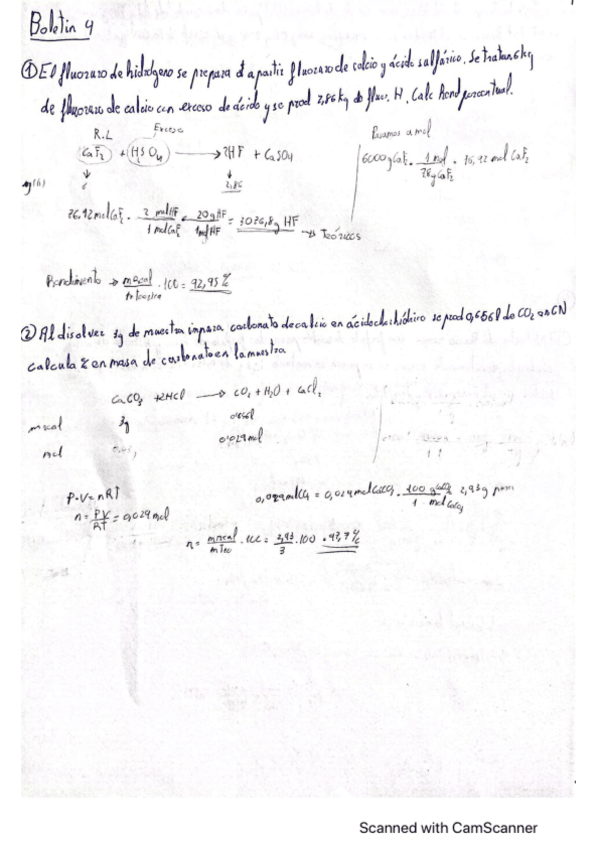 Boletín 4
① El fluoruro de hidrógeno se prepara a partir fluoruro de calcio y ácido sulfúrico. Se tratan 6kg
de fluoruro de calcio con exceso de ácido y se prod 2,86kg de fluor. H. Calc Rend porcentual.
R.L Exceso
CaF₂ + H₂SO₄ → 2HF + CaSO₄
6 2,86
Pasamos a mol
6000g CaF₂ · 1 mol / 78g CaF₂ = 76,92 mol CaF₂
76,92 mol CaF₂ · 2 mol HF / 1 mol CaF₂ · 20g HF / 1 mol HF = 3076,8g HF → Teóricos
Rendimiento → m real / m teorica · 100 = 92,95%
② Al disolver 3g de muestra impura carbonato de calcio en ácido clorhídrico se prod 0,656 l de CO₂ en CN
calcula % en masa de carbonato en la muestra
CaCO₃ + 2HCl → CO₂ + H₂O + CaCl₂
m real 3g 0,656l
mol 0,029 mol
P·V = nRT
n = PV / RT = 0,029 mol
0,029 mol CO₂ = 0,029 mol CaCO₃ · 100 g CaCO₃ / 1 mol CaCO₃ 2,93g
n = m real / m teo · 100 = 2,93 / 3 · 100 = 97,7%
Scanned with CamScanner